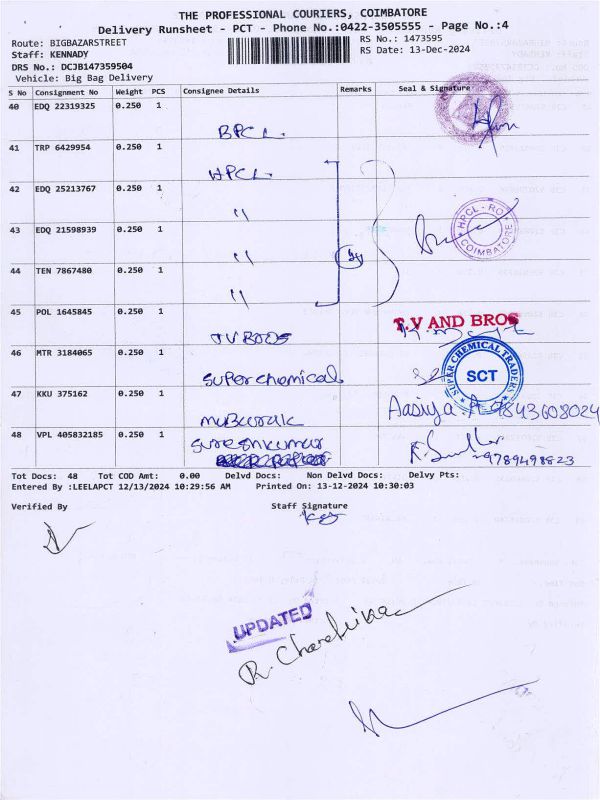 THE PROFESSIONAL COURIERS, COIMBATORE
Delivery Runsheet - PCT - Phone No.:0422-3505555 - Page No.:4
Route: BIGBAZARSTREET
Staff: KENNADY
DRS No.: DCJB147359504
Vehicle: Big Bag Delivery
RS No.: 1473595
RS Date: 13-Dec-2024
S No Consignment No Weight PCS Consignee Details Remarks Seal & Signature
40 EDQ 22319325 0.250 1
BPCL.
41 TRP 6429954 0.250 1
HPCL.
42 EDQ 25213767 0.250 1
"
43 EDQ 21598939 0.250 1
"
HPCL - RO
COIMBATORE
44 TEN 7867480 0.250 1
"
45 POL 1645845 0.250 1
TV BROS
T.V AND BROS
46 MTR 3184065 0.250 1
Super chemical
SUPER CHEMICAL TRADERS
SCT
47 KKU 375162 0.250 1
mubarak
Aasiya.A 9843608024
48 VPL 405832185 0.250 1
Sureshkumar
9789498823
Tot Docs: 48 Tot COD Amt: 0.00 Delvd Docs: Non Delvd Docs: Delvy Pts:
Entered By :LEELAPCT 12/13/2024 10:29:56 AM Printed On: 13-12-2024 10:30:03
Verified By Staff Signature
UPDATED